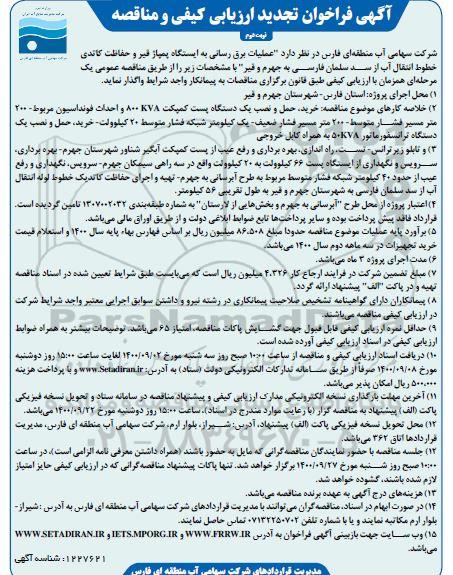 آگهی فراخوان تجدید ارزیابی کیفی و مناقصه
نوبت دوم
شرکت سهامی آب منطقه‌ای فارس در نظر دارد "عملیات برق رسانی به ایستگاه پمپاژ قیر و حفاظت کاتدی
خطوط انتقال آب از سد سلمان فارسی به جهرم و قیر" با مشخصات زیر را از طریق مناقصه عمومی یک
مرحله‌ای همزمان با ارزیابی کیفی طبق قانون برگزاری مناقصات به پیمانکار واجد شرایط واگذار نماید.
۱) محل اجرای پروژه: استان فارس- شهرستان جهرم و قیر
۲) خلاصه کارهای موضوع مناقصه: خرید، حمل و نصب یک دستگاه پست کمپکت ۸۰۰ KVA و احداث فونداسیون مربوط- ۲۰۰
متر مسیر فشار متوسط- ۲۰۰ متر مسیر فشار ضعیف- یک کیلومتر شبکه فشار متوسط ۲۰ کیلوولت- خرید، حمل و نصب یک
دستگاه ترانسفورماتور ۵۰KVA به همراه کابل خروجی
۳) و تابلو زیر ترانس- تست، راه اندازی، بهره برداری و رفع عیب از پست کمپکت آبگیر شناور شهرستان جهرم- بهره برداری،
سرویس و نگهداری از ایستگاه پست ۶۶ کیلوولت به ۲۰ کیلوولت واقع در سه راهی سیمکان جهرم- سرویس، نگهداری و رفع
عیب از حدود ۴۰ کیلومتر شبکه فشار متوسط مربوط به طرح آبرسانی به جهرم- تهیه و اجرای حفاظت کاتدیک خطوط لوله انتقال
آب از سد سلمان فارسی به شهرستان جهرم و قیر به طول تقریبی ۵۶ کیلومتر.
۴) اعتبار پروژه از محل طرح "آبرسانی به جهرم و بخش‌هایی از لارستان" به شماره طبقه‌بندی ۱۳۰۷۰۰۲۰۳۲ تامین گردیده است.
قرارداد فاقد پیش پرداخت بوده و سایر پرداخت‌ها تابع ضوابط ابلاغی دولت و از طریق اوراق مالی می‌باشد.
۵) برآورد پایه عملیات موضوع مناقصه حدودا مبلغ ۸۶.۵۰۸ میلیون ریال بر اساس فهارس بهاء پایه سال ۱۴۰۰ و استعلام قیمت
خرید تجهیزات در سه ماهه دوم سال ۱۴۰۰ می‌باشد.
۶) مدت اجرای پروژه ۳ ماه می‌باشد.
۷) مبلغ تضمین شرکت در فرایند ارجاع کار ۴.۳۲۶ میلیون ریال است که می‌بایست طبق شرایط تعیین شده در اسناد مناقصه
تهیه و در پاکت "الف" پیشنهاد ارائه گردد.
۸) پیمانکاران دارای گواهینامه تشخیص صلاحیت پیمانکاری در رشته نیرو و داشتن سوابق اجرایی معتبر واجد شرایط شرکت
در ارزیابی کیفی مناقصه می‌باشند.
۹) حداقل نمره ارزیابی کیفی قابل قبول جهت گشایش پاکات مناقصه، امتیاز ۶۵ می‌باشد. توضیحات بیشتر به همراه ضوابط
ارزیابی کیفی در اسناد ارزیابی کیفی آورده شده است.
۱۰) دریافت اسناد ارزیابی کیفی و مناقصه از ساعت ۱۰:۰۰ صبح روز سه شنبه مورخ ۱۴۰۰/۰۹/۰۲ لغایت ساعت ۱۵:۰۰ روز دوشنبه
مورخ ۱۴۰۰/۰۹/۰۸ صرفاً از طریق سامانه تدارکات الکترونیکی دولت (ستاد) به آدرس: www.Setadiran.ir و با پرداخت هزینه
۵۰۰.۰۰۰ ریال امکان پذیر می‌باشد.
۱۱) آخرین مهلت بارگذاری نسخه الکترونیکی مدارک ارزیابی کیفی و پیشنهاد مناقصه در سامانه ستاد و تحویل نسخه فیزیکی
پاکت (الف) پیشنهاد به مناقصه گزار (با رعایت موارد مندرج در اسناد)، ساعت ۱۵:۰۰ روز دوشنبه مورخ ۱۴۰۰/۰۹/۲۲ می‌باشد.
۱۲) محل تحویل نسخه فیزیکی پاکت (الف) پیشنهاد، آدرس: شیراز، بلوار ارم، شرکت سهامی آب منطقه ای فارس، مدیریت
قراردادها اتاق ۳۶۲ می‌باشد.
۱۲) جلسه مناقصه با حضور نمایندگان مناقصه‌گرانی که مایل به حضور باشند (همراه داشتن معرفی نامه الزامی است)، در ساعت
۱۰:۰۰ صبح روز شنبه مورخ ۱۴۰۰/۰۹/۲۷ برگزار خواهد شد. تنها پاکات پیشنهاد مناقصه‌گرانی که در ارزیابی کیفی حایز امتیاز
لازم شده باشند، گشوده خواهد شد.
۱۳) هزینه‌های درج آگهی به عهده برنده مناقصه می‌باشد.
۱۴) در صورت ابهام در اسناد، مناقصه‌گران می توانند با مدیریت قراردادهای شرکت سهامی آب منطقه ای فارس به آدرس :شیراز-
بلوار ارم مکاتبه نمایند و یا با شماره تلفن ۰۷۱۳۲۲۵۰۷۰۲ تماس حاصل نمایند.
۱۵) وب سایت جهت بازبینی آگهی فراخوان به آدرس WWW.FRRW.IR و IETS.MPORG.IR و WWW.SETADIRAN.IR
می‌باشد. ۱۲۲۷۶۲۱: شناسه آگهی
مدیریت قراردادهای شرکت سهامی آب منطقه ای فارس